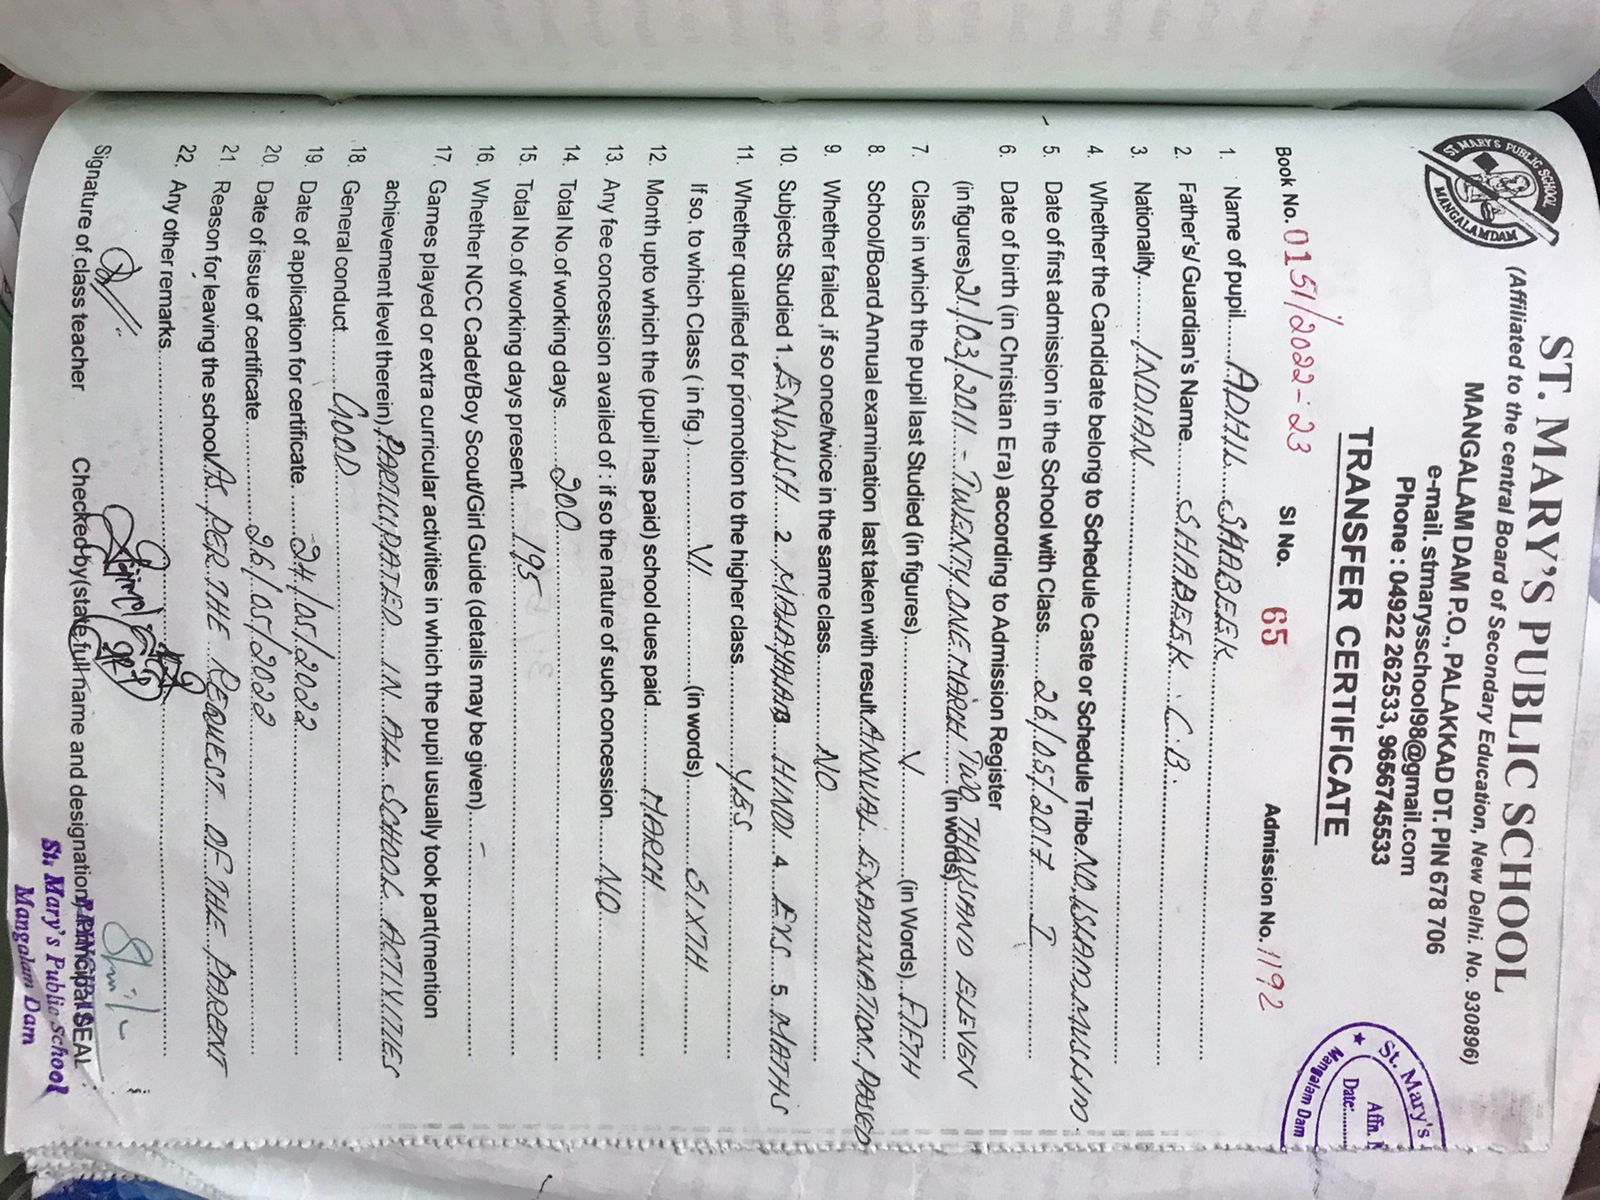 ST. MARY'S PUBLIC SCHOOL
(Affiliated to the central Board of Secondary Education, New Delhi. No. 930896)
MANGALAM DAM P.O., PALAKKAD DT. PIN 678 706
e-mail. stmarysschool98@gmail.com
Phone : 04922 262533, 9656745533
ST MARY'S PUBLIC SCHOOL
MANGALAMDAM
TRANSFER CERTIFICATE
St. Mary's
Affn.
Date:
Mangalam Dam
Book No. 0151/2022-23 Sl No. 65 Admission No. 1192
1. Name of pupil ADHIL SHABEEK
2. Father's/ Guardian's Name SHABEEK . C.B.
3. Nationality INDIAN
4. Whether the Candidate belong to Schedule Caste or Schedule Tribe NO, ISLAM MUSLIM.
5. Date of first admission in the School with Class 26/05/2017 I
6. Date of birth (in Christian Era) according to Admission Register
(in figures) 21/03/2011 - TWENTY ONE MARCH (in words) TWO THOUSAND ELEVEN
7. Class in which the pupil last Studied (in figures) V (in Words) FIFTH
8. School/Board Annual examination last taken with result ANNUAL EXAMINATION PASSED
9. Whether failed ,if so once/twice in the same class NO
10. Subjects Studied 1. ENGLISH 2. MALAYALAM HINDI 4 EVS 5 MATHS
11. Whether qualified for promotion to the higher class YES
If so, to which Class ( in fig.) VI (in words) SIXTH
12. Month upto which the (pupil has paid) school dues paid MARCH
13. Any fee concession availed of : if so the nature of such concession NO
14. Total No.of working days 200
15. Total No.of working days present 195
16. Whether NCC Cadet/Boy Scout/Girl Guide (details may be given) -
17. Games played or extra curricular activities in which the pupil usually took part(mention
achievement level therein) PARTICIPATED IN ALL SCHOOL ACTIVITIES
18. General conduct GOOD
19. Date of application for certificate 24/05/2022
20. Date of issue of certificate 26/05/2022
21. Reason for leaving the school AS PER THE REQUEST OF THE PARENT
22. Any other remarks
Signature of class teacher Checked by(state full name and designation) Principal SEAL
PRINCIPAL
St. Mary's Public School
Mangalam Dam